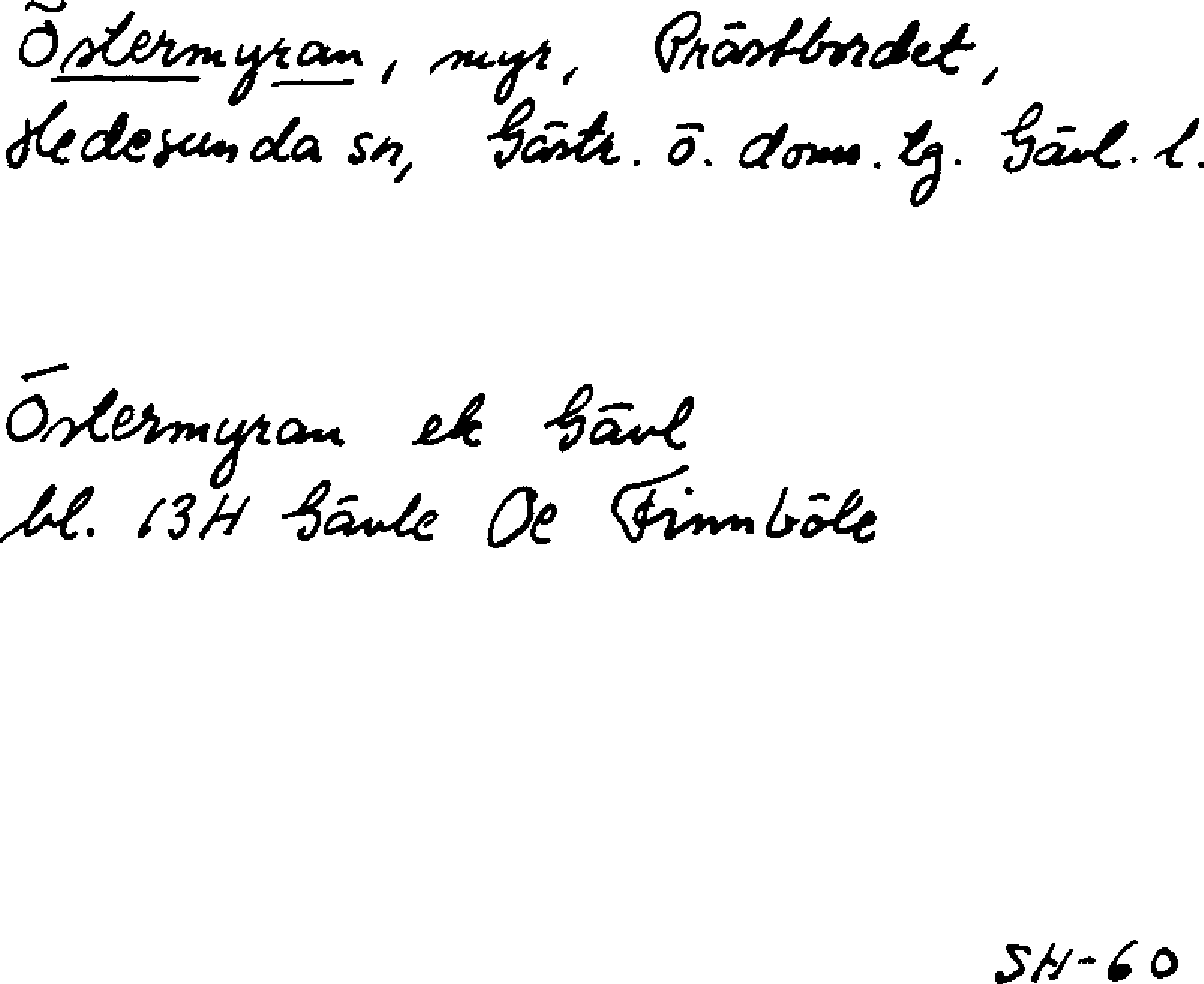 Östermyran, myr, Prästbordet,
Hedesunda sn, Gästr. ö. doms. tg. Gävl. l.
Östermyran ek Gävl
bl. 13H Gävle 0e Finnböle
SH-60